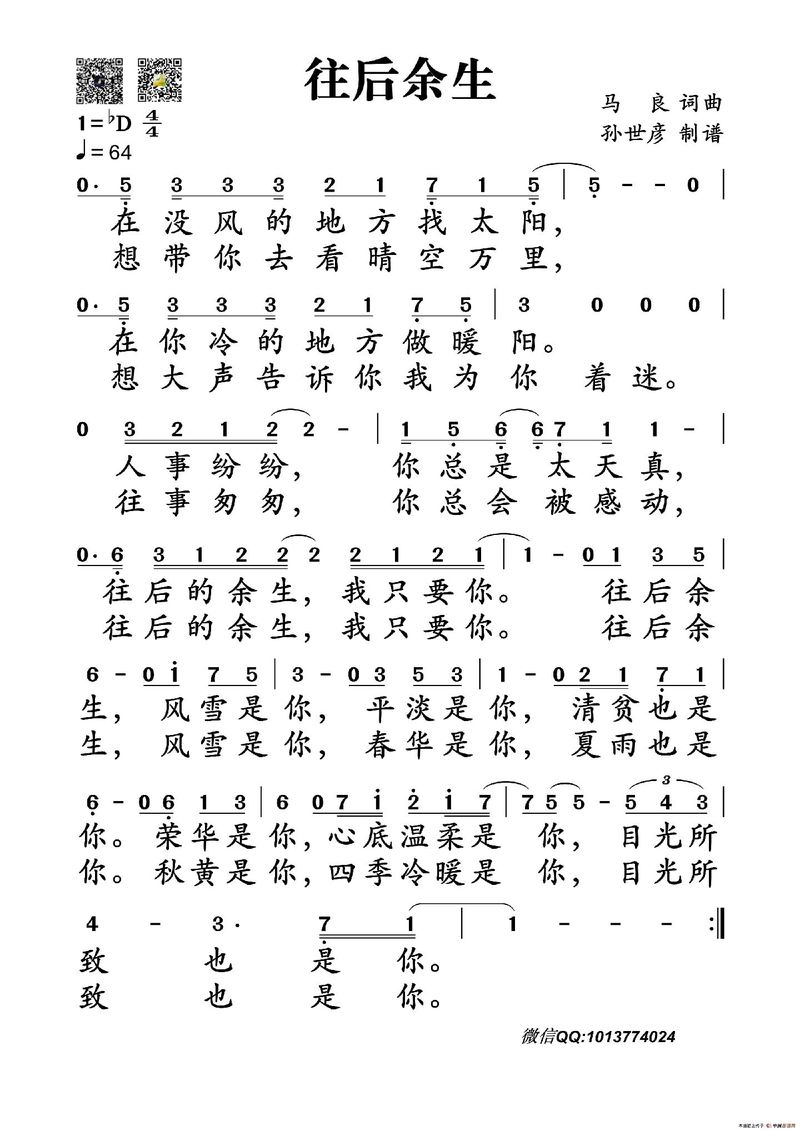 往后余生
马 良 词曲
1=♭D 4/4
孙世彦 制谱
♩=64
0· 5 3 3 3 2 1 7 1 5 | 5 - - 0
在没风的地方找太阳,
想带你去看晴空万里,
0· 5 3 3 3 2 1 7 5 | 3 0 0 0
在你冷的地方做暖阳。
想大声告诉你我为你着迷。
0 3 2 1 2 2 - | 1 5 6 6 7 1 1 - |
人事纷纷, 你总是太天真,
往事匆匆, 你总会被感动,
0· 6 3 1 2 2 2 2 1 2 1 | 1 - 0 1 3 5 |
往后的余生,我只要你。 往后余
往后的余生,我只要你。 往后余
6 - 0 i 7 5 | 3 - 0 3 5 3 | 1 - 0 2 1 7 1 |
生, 风雪是你, 平淡是你, 清贫也是
生, 风雪是你, 春华是你, 夏雨也是
6 - 0 6 1 3 | 6 0 7 i 2 i 7 | 7 5 5 - 5 4 3 |
3
你。荣华是你,心底温柔是 你, 目光所
你。秋黄是你,四季冷暖是 你, 目光所
4 - 3· 7 1 | 1 - - - :||
致 也 是 你。
致 也 是 你。
微信QQ:1013774024